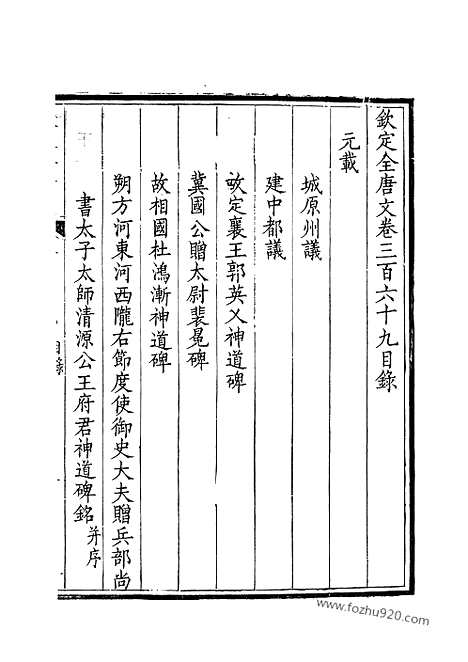 欽定全唐文卷三百六十九目錄
元載
城原州議
建中都議
故定襄王郭英乂神道碑
冀國公贈太尉裴冕碑
故相國杜鴻漸神道碑
朔方河東河西隴右節度使御史大夫贈兵部尚
書太子太師清源公王府君神道碑銘 并序
目錄
www.fozhu920.com